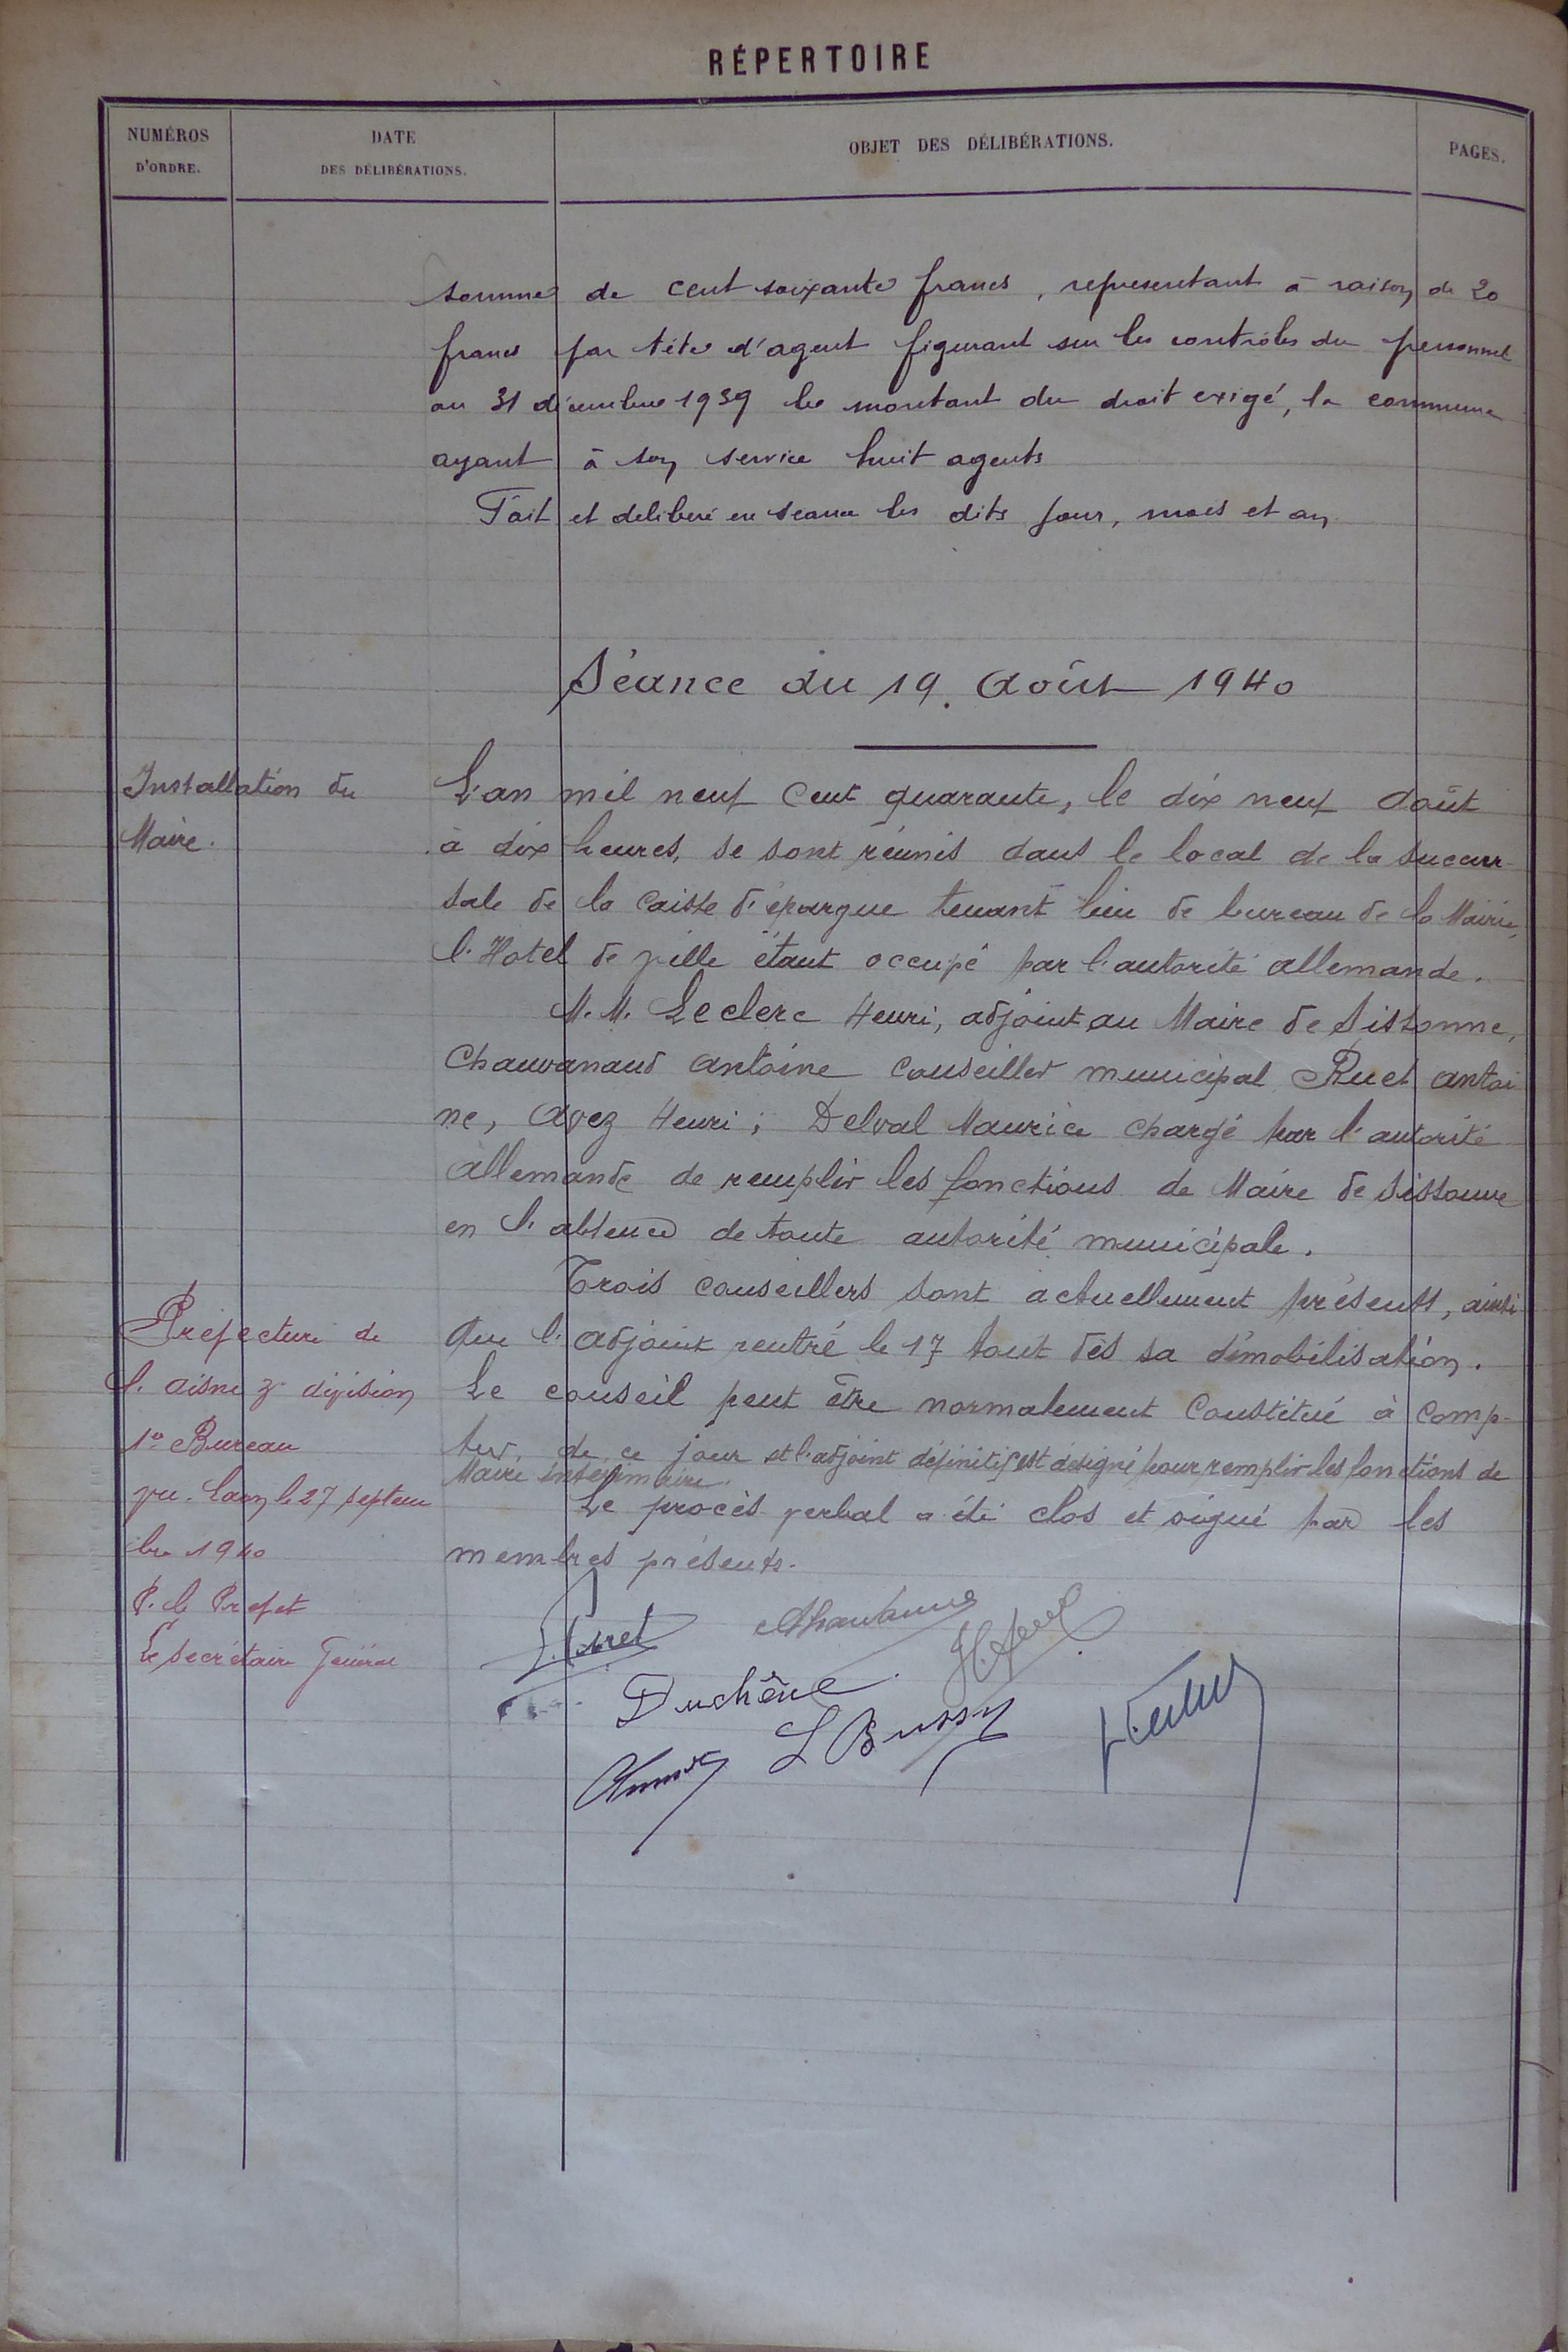 RÉPERTOIRE
NUMÉROS
D'ORDRE.
DATE
DES DÉLIBÉRATIONS.
OBJET DES DÉLIBÉRATIONS.
PAGES.
somme de cent soixante francs, representant à raison de 20
francs par tête d'agent figurant sur les contrôles du personnel
au 31 décembre 1939 le montant du droit exigé, la commune
ayant à son service huit agents
Fait et deliberé en seance les dits jour, mois et an
Séance du 19. Août 1940
Installation du
Maire.
L'an mil neuf cent quarante, le dix neuf août
à dix heures, se sont réunis dans le local de la succur-
sale de la caisse d'épargne tenant lieu de bureau de la Mairie,
l'Hotel de ville étant occupé par l'autorité allemande.
M.M. Leclerc Henri, adjoint au Maire de Sissonne,
Chauvanaud antoine conseiller municipal Ruet antoi
ne, Avez Henri; Delval Maurice chargé par l'autorité
allemande de remplir les fonctions de Maire de Sissonne
en l'absence de toute autorité municipale.
Trois conseillers sont actuellement présents, ainsi
que l'adjoint rentré le 17 Aout dès sa démobilisation.
Le conseil peut être normalement constitué à comp-
ter, de ce jour et l'adjoint définitif est désigné pour remplir les fonctions de
Maire intérimaire.
Le procès verbal a été clos et signé par les
membres présents.
Préfecture de
l'aisne 3e division
1er Bureau
vu. Laon le 27 septem
bre 1940
P. le Prefet
Le secrétaire Général
Duchêne
L Bussy